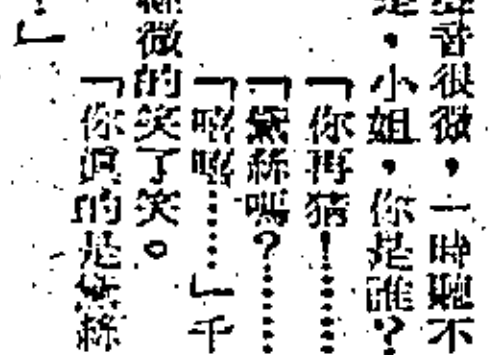 聲音很微，一時聽不
是，小姐，你是誰？
「你再猜！……
「黛絲嗎？……
「嘻嘻……」千
微的笑了笑。
「你真的是黛絲
？」